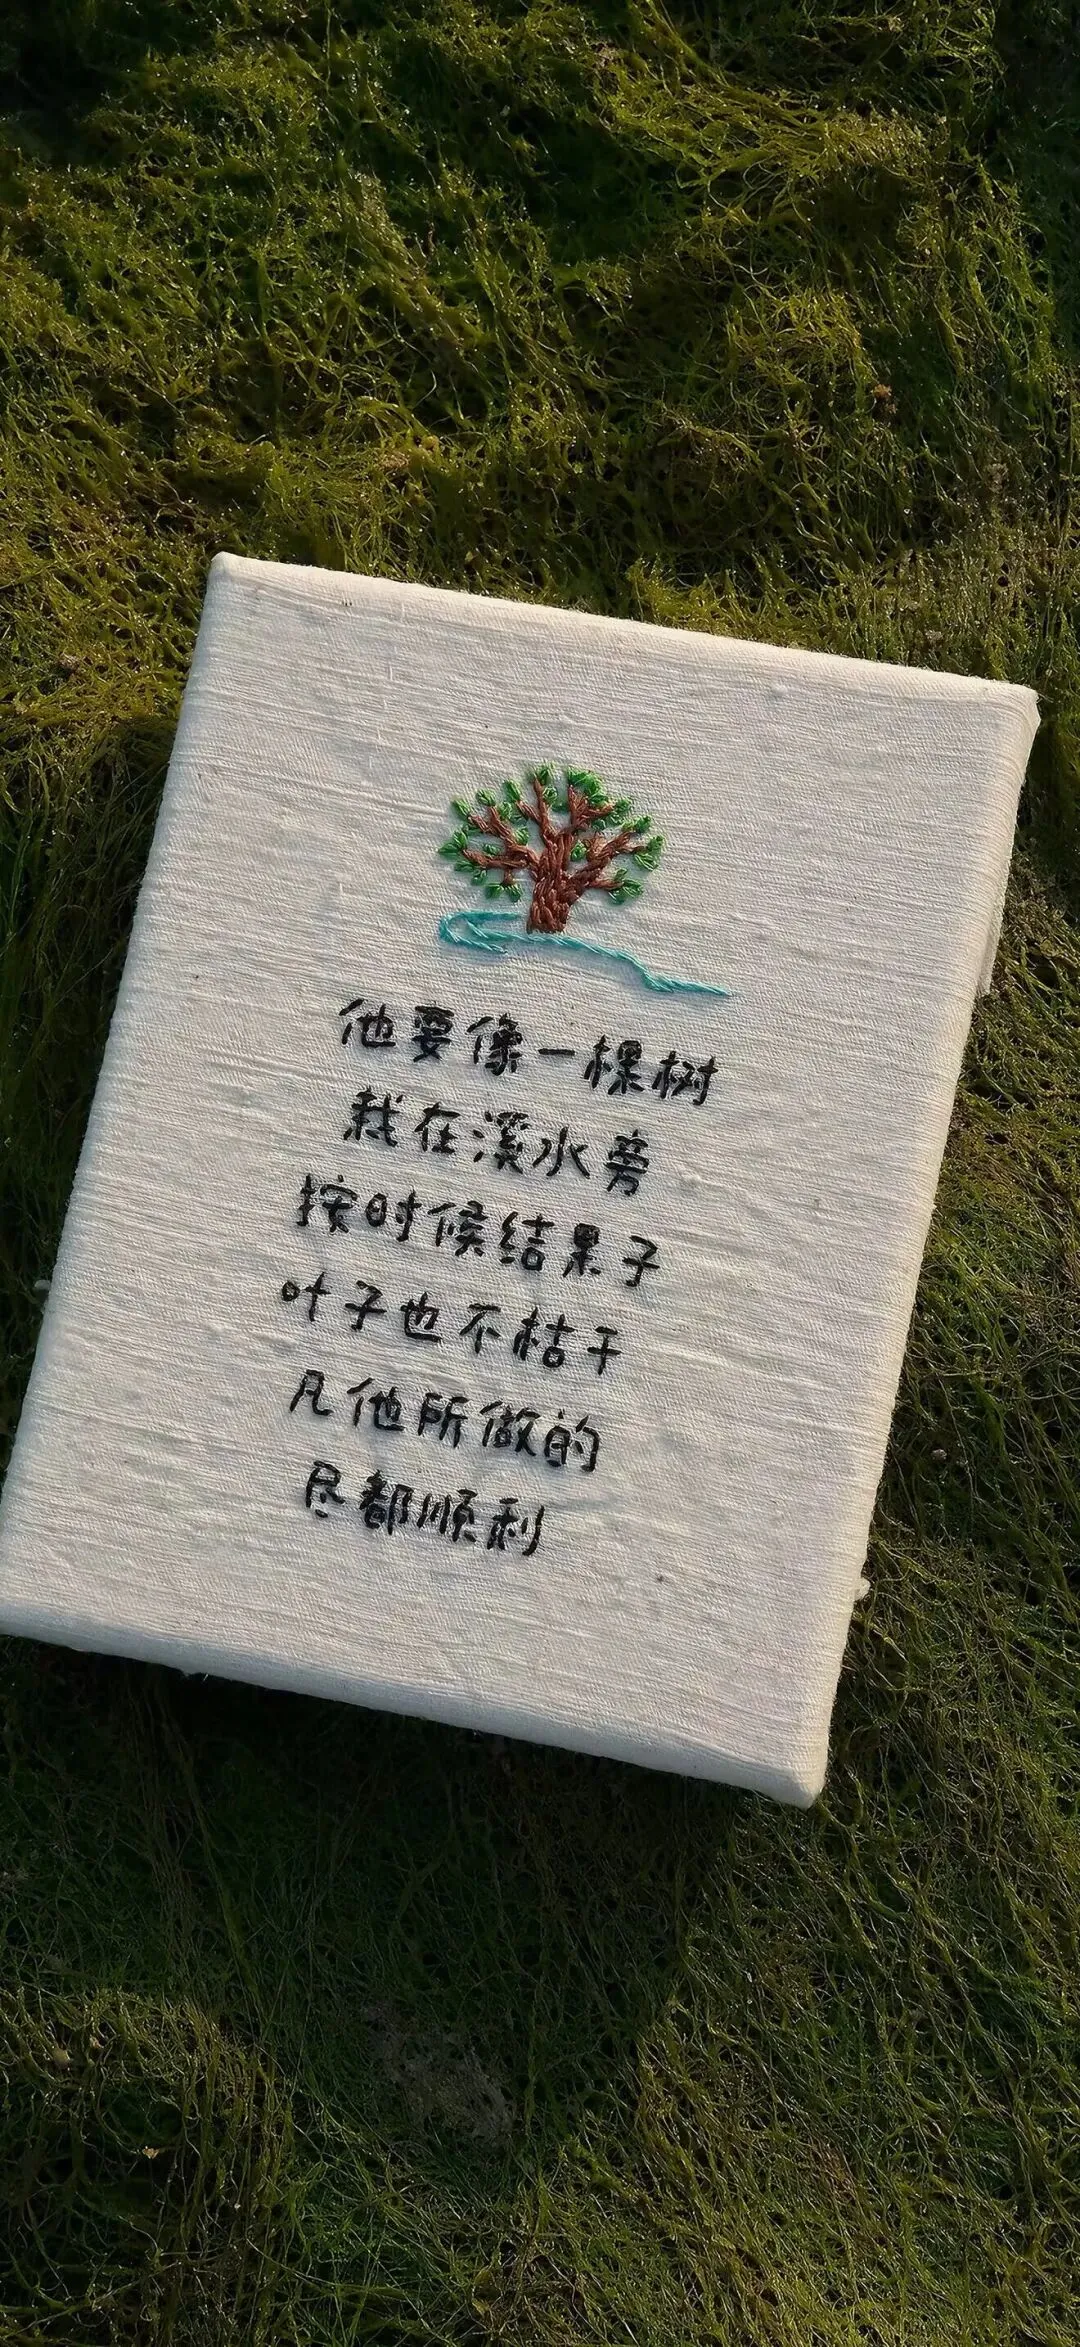 他要像一棵树
栽在溪水旁
按时候结果子
叶子也不枯干
凡他所做的
尽都顺利